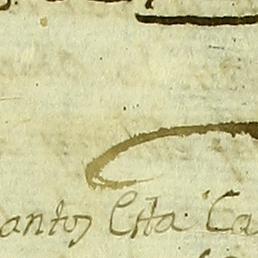 antos Esta Ca